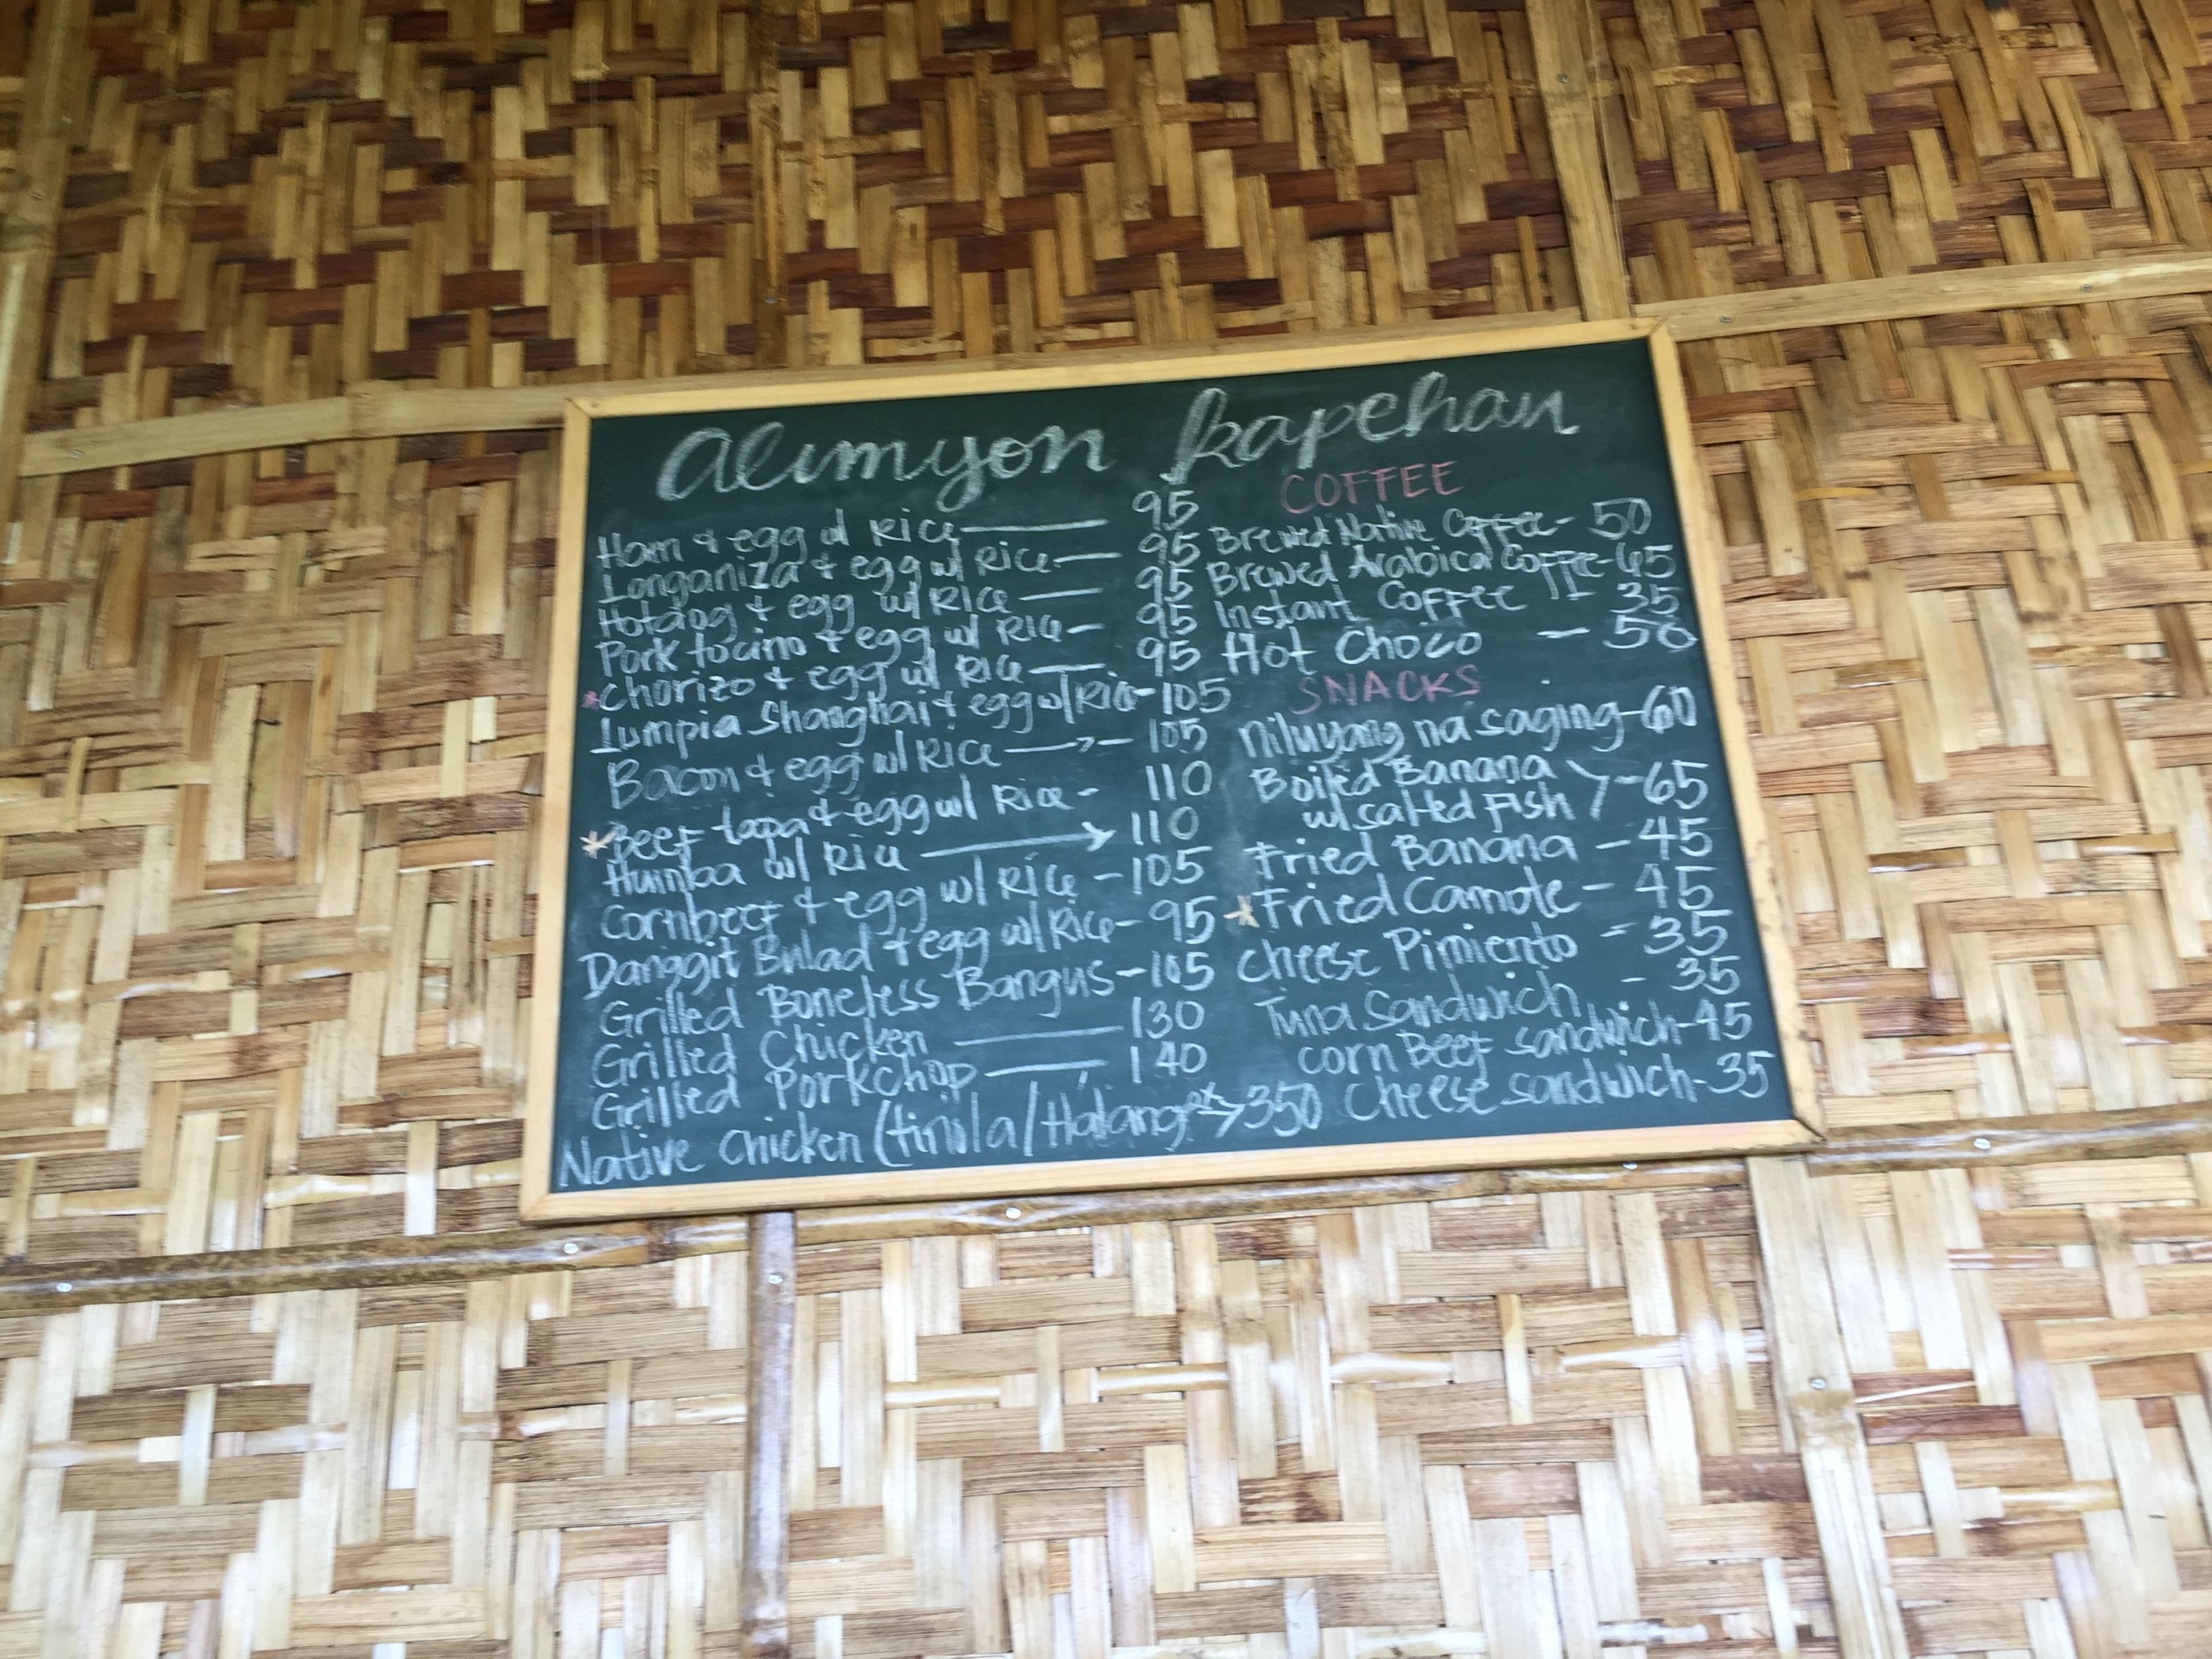 Alimyon kapehan
Ham & egg w/ Rice — 95
Longaniza & egg w/ Rice — 95
Hotdog & egg w/ Rice — 95
Pork tocino & egg w/ Rice - 95
*Chorizo & egg w/ Rice — 95
Lumpia Shanghai & egg w/ Rice - 105
Bacon & egg w/ Rice — 105
*Beef tapa & egg w/ Rice - 110
Humba w/ Rice → 110
Cornbeef & egg w/ Rice - 105
Danggit Bulad & egg w/ Rice - 95
Grilled Boneless Bangus - 105
Grilled Chicken — 130
Grilled Porkchop — 140
Native Chicken (tinola/Halang → 350
COFFEE
Brewed Native Coffee - 50
Brewed Arabica Coffee - 65
Instant Coffee - 35
Hot Choco - 50
SNACKS
niluyang na saging - 60
Boiled Banana
w/ salted Fish - 65
Fried Banana - 45
*Fried Camote - 45
Cheese Pimiento - 35
Tuna Sandwich - 35
Corn Beef sandwich - 45
Cheese sandwich - 35